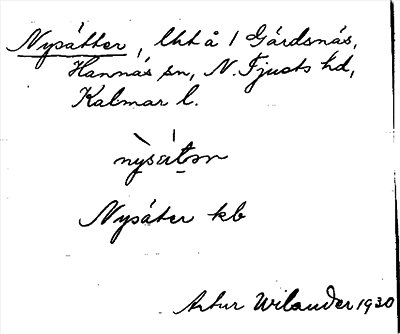 Nysätter, lht å 1 Gärdsnäs,
Hannäs sn, N. Tjusts hd,
Kalmar l.
Nysäter kb
Artur Wilander 1930